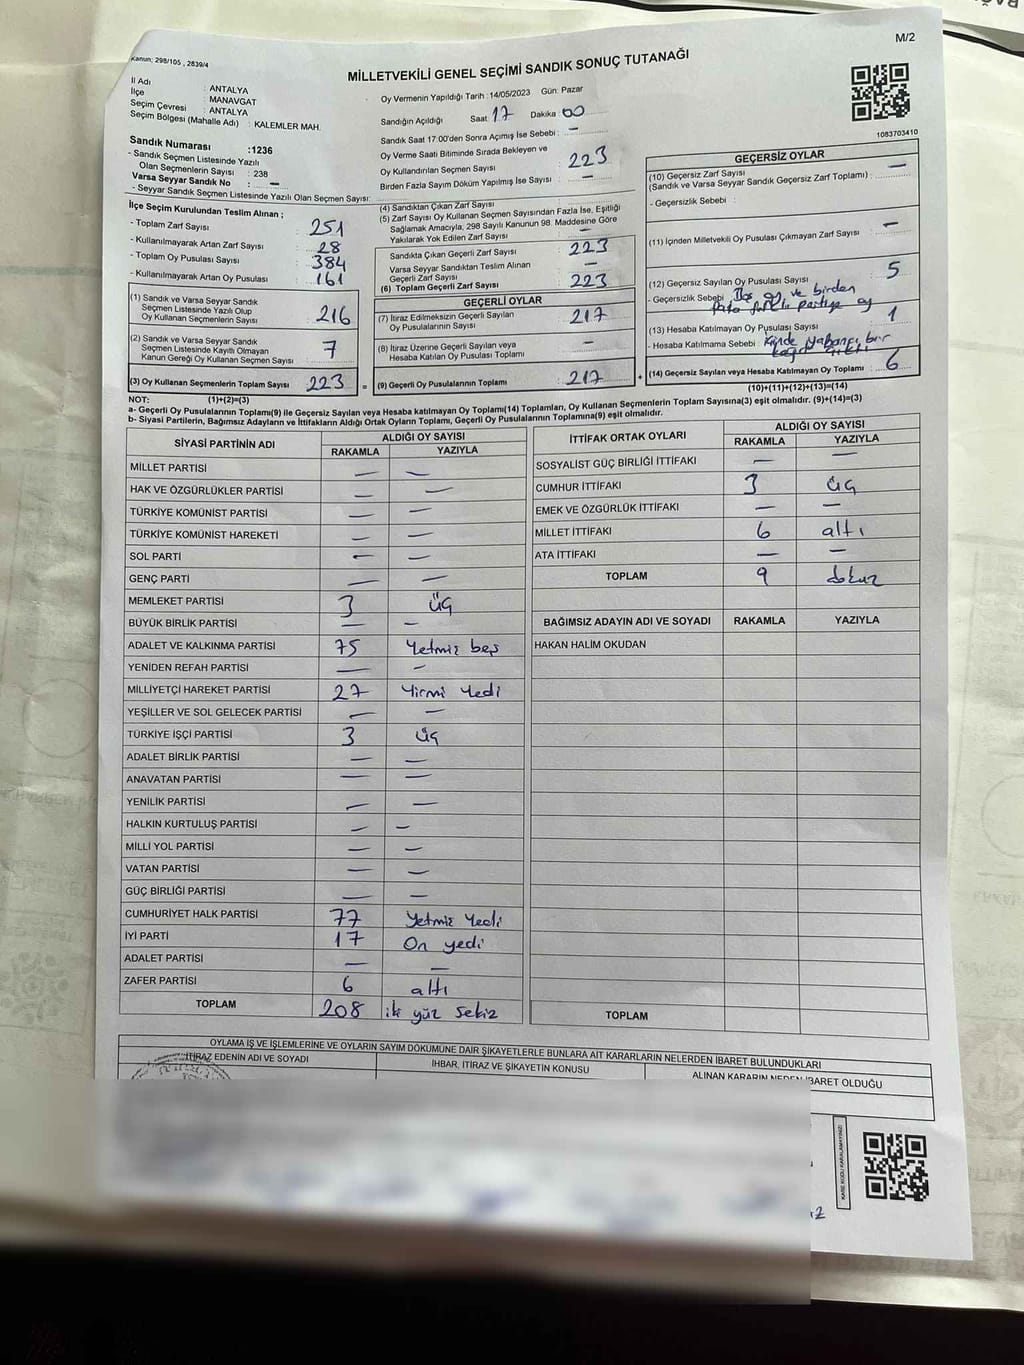 M/2
Kanun: 298/105 , 2839/4
MİLLETVEKİLİ GENEL SEÇİMİ SANDIK SONUÇ TUTANAĞI
1083703410
İl Adı : ANTALYA
İlçe : MANAVGAT
Seçim Çevresi : ANTALYA
Seçim Bölgesi (Mahalle Adı) : KALEMLER MAH.
Sandık Numarası :1236
- Sandık Seçmen Listesinde Yazılı
Olan Seçmenlerin Sayısı : 238
Varsa Seyyar Sandık No : —
- Seyyar Sandık Seçmen Listesinde Yazılı Olan Seçmen Sayısı:
Oy Vermenin Yapıldığı Tarih :14/05/2023 Gün: Pazar
Sandığın Açıldığı Saat: 17 Dakika: 00
Sandık Saat 17:00'den Sonra Açımış İse Sebebi : —
Oy Verme Saati Bitiminde Sırada Bekleyen ve
Oy Kullandırılan Seçmen Sayısı : 223
Birden Fazla Sayım Döküm Yapılmış İse Sayısı : —
İlçe Seçim Kurulundan Teslim Alınan ;
- Toplam Zarf Sayısı : 251
- Kullanılmayarak Artan Zarf Sayısı : 28
- Toplam Oy Pusulası Sayısı : 384
- Kullanılmayarak Artan Oy Pusulası : 161
(1) Sandık ve Varsa Seyyar Sandık
Seçmen Listesinde Yazılı Olup
Oy Kullanan Seçmenlerin Sayısı : 216
(2) Sandık ve Varsa Seyyar Sandık
Seçmen Listesinde Kayıtlı Olmayan
Kanun Gereği Oy Kullanan Seçmen Sayısı : 7
(3) Oy Kullanan Seçmenlerin Toplam Sayısı 223 =
(1)+(2)=(3)
(4) Sandıktan Çıkan Zarf Sayısı
(5) Zarf Sayısı Oy Kullanan Seçmen Sayısından Fazla İse, Eşitliği
Sağlamak Amacıyla, 298 Sayılı Kanunun 98. Maddesine Göre
Yakılarak Yok Edilen Zarf Sayısı : —
Sandıkta Çıkan Geçerli Zarf Sayısı : 223
Varsa Seyyar Sandıktan Teslim Alınan
Geçerli Zarf Sayısı : —
(6) Toplam Geçerli Zarf Sayısı : 223
GEÇERLİ OYLAR
(7) İtiraz Edilmeksizin Geçerli Sayılan
Oy Pusulalarının Sayısı : 217
(8) İtiraz Üzerine Geçerli Sayılan veya
Hesaba Katılan Oy Pusulası Toplamı : —
(9) Geçerli Oy Pusulalarının Toplamı : 217 +
GEÇERSİZ OYLAR
(10) Geçersiz Zarf Sayısı
(Sandık ve Varsa Seyyar Sandık Geçersiz Zarf Toplamı) : —
- Geçersizlik Sebebi :
(11) İçinden Milletvekili Oy Pusulası Çıkmayan Zarf Sayısı : —
(12) Geçersiz Sayılan Oy Pusulası Sayısı : 5
- Geçersizlik Sebebi : Boş oy ve birden
fazla partiye oy
(13) Hesaba Katılmayan Oy Pusulası Sayısı 1
- Hesaba Katılmama Sebebi : içinde yabancı bir
kağıt
(14) Geçersiz Sayılan veya Hesaba Katılmayan Oy Toplamı : 6
(10)+(11)+(12)+(13)=(14)
NOT:
a- Geçerli Oy Pusulalarının Toplamı(9) ile Geçersiz Sayılan veya Hesaba katılmayan Oy Toplamı(14) Toplamları, Oy Kullanan Seçmenlerin Toplam Sayısına(3) eşit olmalıdır. (9)+(14)=(3)
b- Siyasi Partilerin, Bağımsız Adayların ve İttifakların Aldığı Ortak Oyların Toplamı, Geçerli Oy Pusulalarının Toplamına(9) eşit olmalıdır.
SİYASİ PARTİNİN ADI ALDIĞI OY SAYISI
RAKAMLA YAZIYLA
MİLLET PARTİSİ — —
HAK VE ÖZGÜRLÜKLER PARTİSİ — —
TÜRKİYE KOMÜNİST PARTİSİ — —
TÜRKİYE KOMÜNİST HAREKETİ — —
SOL PARTİ — —
GENÇ PARTİ — —
MEMLEKET PARTİSİ 3 üç
BÜYÜK BİRLİK PARTİSİ — —
ADALET VE KALKINMA PARTİSİ 75 Yetmiş beş
YENİDEN REFAH PARTİSİ — —
MİLLİYETÇİ HAREKET PARTİSİ 27 Yirmi Yedi
YEŞİLLER VE SOL GELECEK PARTİSİ — —
TÜRKİYE İŞÇİ PARTİSİ 3 üç
ADALET BİRLİK PARTİSİ — —
ANAVATAN PARTİSİ — —
YENİLİK PARTİSİ — —
HALKIN KURTULUŞ PARTİSİ — —
MİLLİ YOL PARTİSİ — —
VATAN PARTİSİ — —
GÜÇ BİRLİĞİ PARTİSİ — —
CUMHURİYET HALK PARTİSİ 77 Yetmiş Yedi
İYİ PARTİ 17 On yedi
ADALET PARTİSİ — —
ZAFER PARTİSİ 6 altı
TOPLAM 208 iki yüz sekiz
İTTİFAK ORTAK OYLARI ALDIĞI OY SAYISI
RAKAMLA YAZIYLA
SOSYALİST GÜÇ BİRLİĞİ İTTİFAKI — —
CUMHUR İTTİFAKI 3 üç
EMEK VE ÖZGÜRLÜK İTTİFAKI — —
MİLLET İTTİFAKI 6 altı
ATA İTTİFAKI — —
TOPLAM 9 dokuz
BAĞIMSIZ ADAYIN ADI VE SOYADI RAKAMLA YAZIYLA
HAKAN HALİM OKUDAN
TOPLAM
OYLAMA İŞ VE İŞLEMLERİNE VE OYLARIN SAYIM DÖKÜMÜNE DAİR ŞİKAYETLERLE BUNLARA AİT KARARLARIN NELERDEN İBARET BULUNDUKLARI
İTİRAZ EDENİN ADI VE SOYADI
İHBAR, İTİRAZ VE ŞİKAYETİN KONUSU
ALINAN KARARIN NEDEN İBARET OLDUĞU
KARE KODU KARALAMAYINIZ!